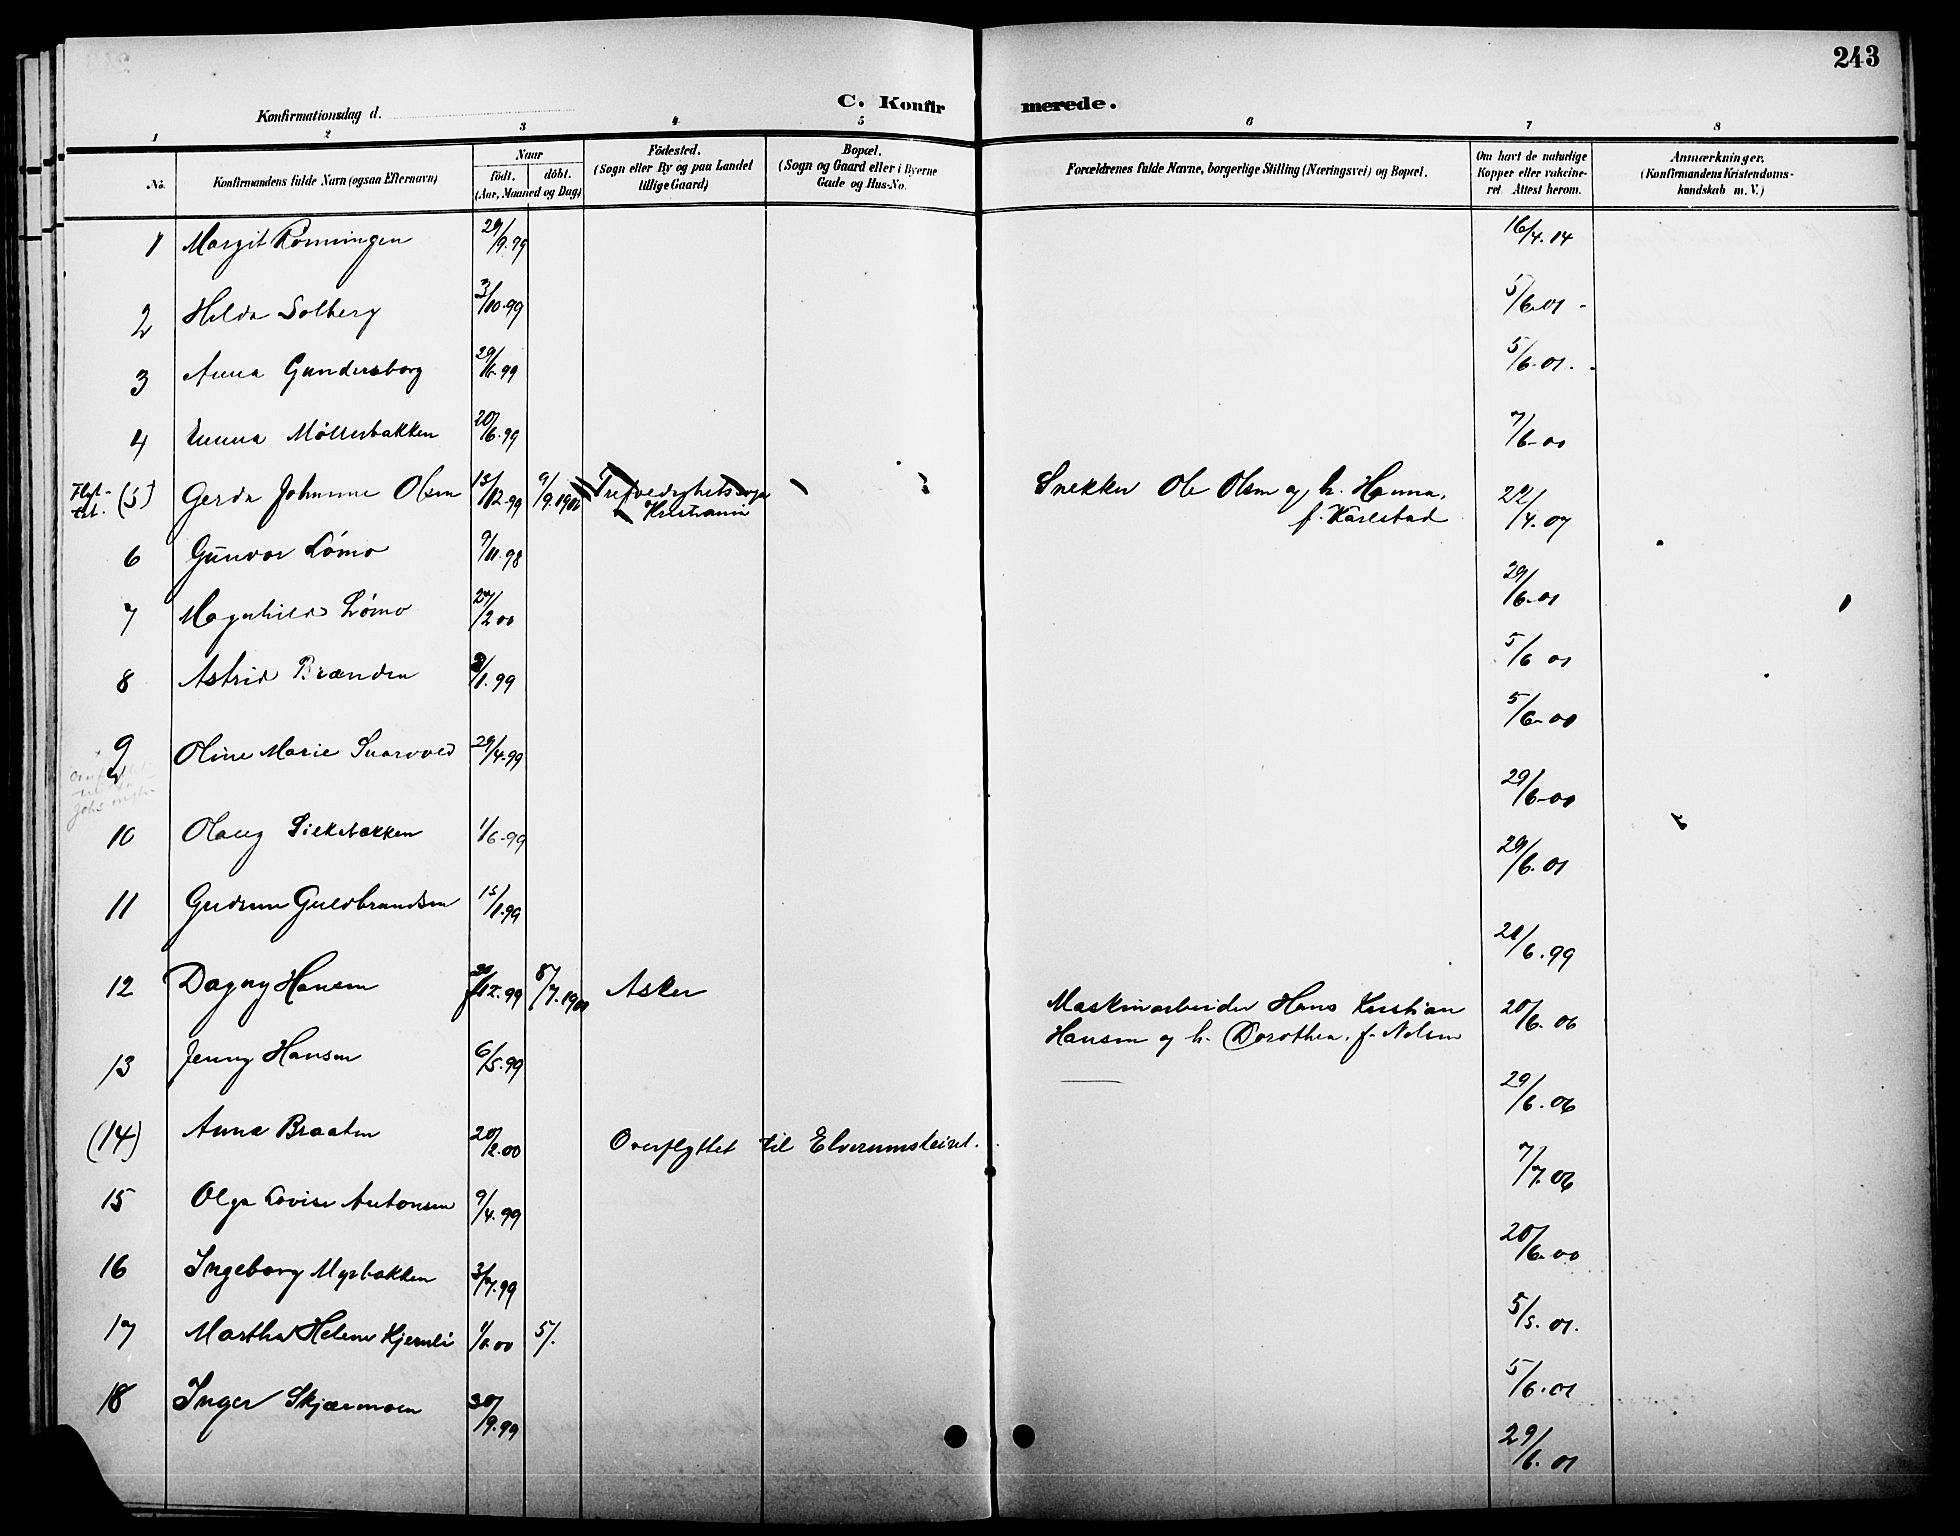 243
C. Konfirmerede.
Konfirmationsdag d.
1 2 3 4 5 6 7 8
No.
Konfirmandens fulde Navn (ogsaa Efternavn)
Naar
født. døbt.
(Aar, Maaned og Dag)
Fødested.
(Sogn eller By og paa Landet
tillige Gaard)
Bopæl.
(Sogn og Gaard eller i Byerne
Gade og Hus-No.
Forældrenes fulde Navne, borgerlige Stilling (Næringsvei) og Bopæl.
Om havt de naturlige
Kopper eller vakcine-
ret Attest herom.
Anmærkninger.
(Konfirmandens Kristendoms-
kundskab m. V.)
1 Margit Rønningen 29/9.99 16/4.14
2 Hilda Solberg 3/10.99 5/6.01 -
3 Anna Gundersborg 29/6.99 5/6.01.
4 Emma Møllerbakken 20/6.99 7/6-00
Flyt-
tet. (5) Gerda Johanne Olsen 15/12.99 9/9.1900 Snekker Ole Olsen og h. Hanna, 22/4.07
Kristiania f. Karlstad
6 Gunvor Lømo 9/11.98 29/6-01
7 Magnhild Lømo 27/2 00 5/6 01
8 Astrid Brænden /1.99 5/6-00
9 Oline Marie 29/4.99 29/6-00
10 Olaug 1/6-99 29/6.01
11 Gudrun Guldbrandsen 15/1.99 21/6.99
12 Dagny Hansen 30/12.99 8/7.1900 Asker Maskinarbeider Hans Kristian 20/6.06
Hansen og h. Dorothea, f. Nelsen
13 Jenny Hansen 6/5.99 29/6.06
(14) Anna Braaten 20/2.00 Overflyttet til Elverumsleiret. 7/7.06
15 Olga Lovise Antonsen 9/4.99 20/6.00
16 Ingeborg Myrbakken 3/7.99 5/5.01.
17 Martha Helene Kjernli 1/6.00 5/. 5/6.01
18 Inger Skjærmoen 30/9.99 29/6.01